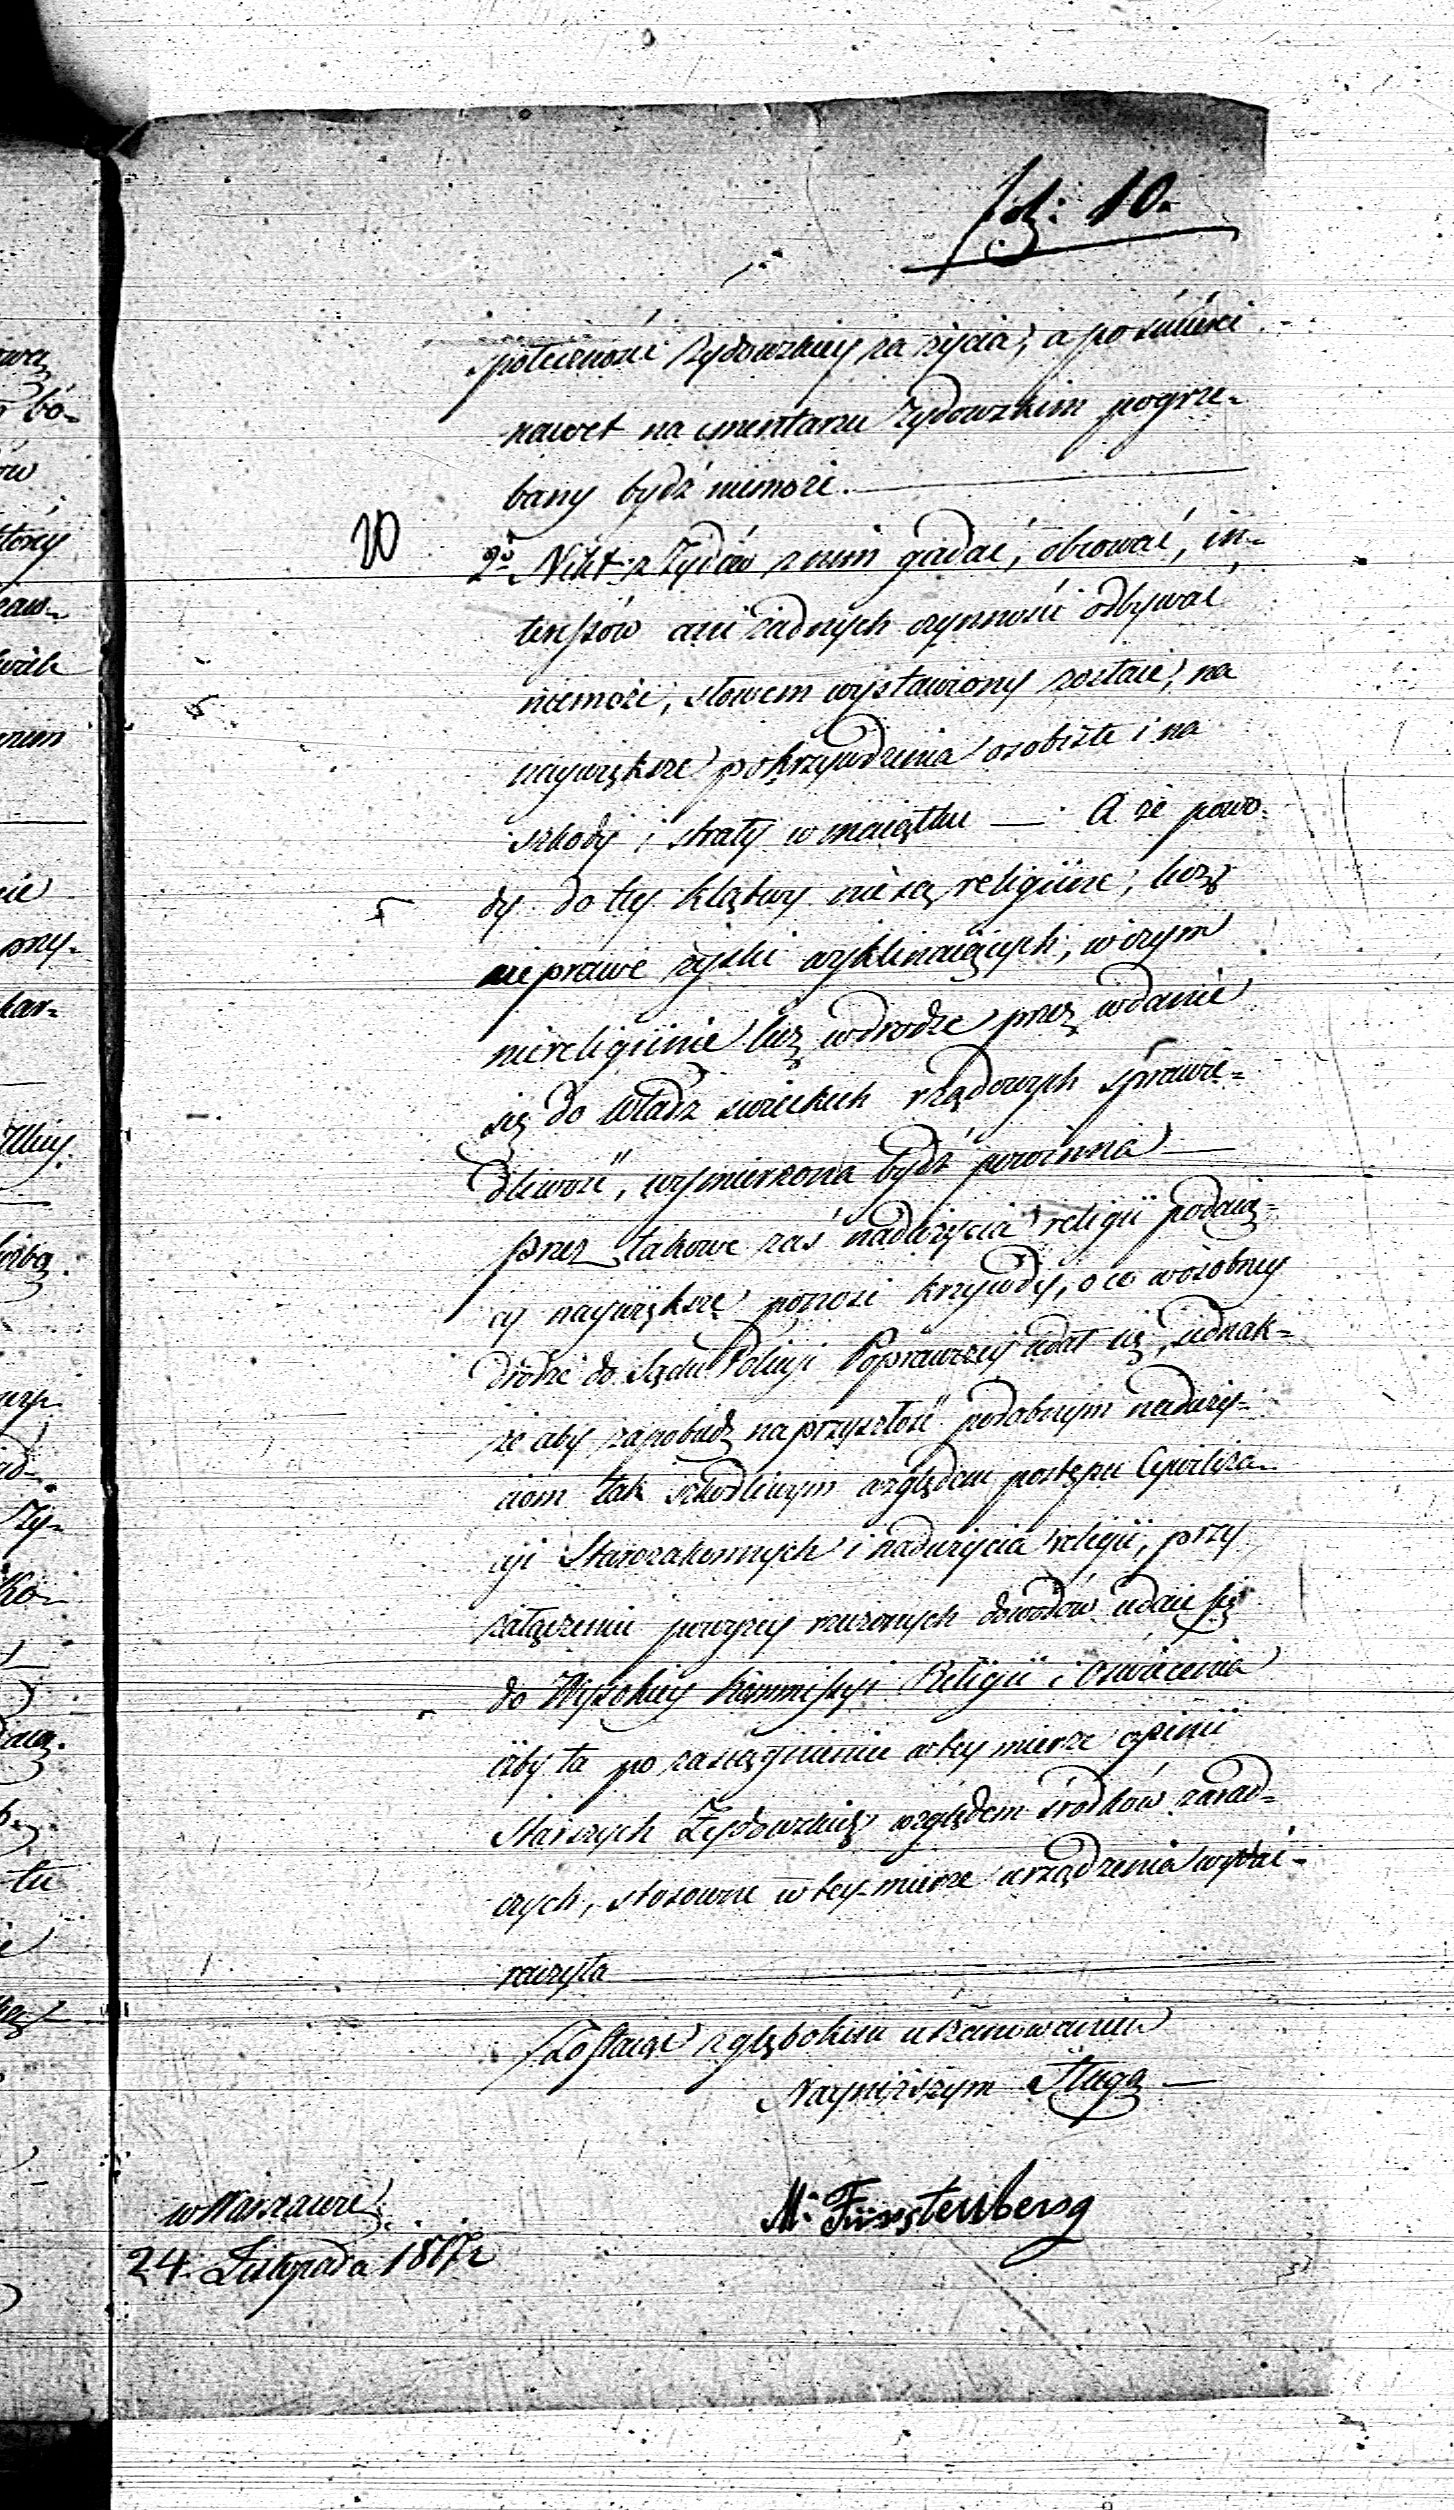 fol: 10.
społeczności Zydowskiey za zycia, a po śmierci
nawet na cmentarzu Zydowskim pogrze-
bany bydź niemoze.
20
2o Nikt z Zydów z nim gadać, obcować, in-
teressów ani żadnych czynności odbywać
niemoże, słowem wystawiony zostaie, na
naywiększe pokrzywdzenia osobiste i na
szkody i straty w maiątku — A że powo-
dy do tey klątwy nie są religiine, lecz
nieprawe zyski wyklinaiących, w czym
niereligiinie lecz wdrodze przez wdanie
się do Władz swieckich rządowych sprawie-
dliwość, wymierzona bydź powinna —
przez takowe zaś nadużycia religii podaią-
cy naywiększe ponosi krzywdy, o co w osobney
drodze do Sądu Policyi Poprawczey udał się, iednak-
że aby zapobiedz na przyszłość podobnym naduży-
ciom tak szkodliwym względem postępu Cywiliza-
cyi Starozakonnych i nadużycia religii, przy
załączeniu powyzey rzeczonych dowodów udaie się
do Wysokiey Kommissyi Religii i Oświecenia
iżby ta po zasiągnieniu w tey mierze opinii
Starszych Żydowskich względem środków zarad-
czych, stosowne w tey mierze urządzenia wydać
raczyła
Zostaiąc z głębokim uszanowaniem
Nayniższym Sługą —
M. Fürstenberg
w Warszawie
24. Listopada